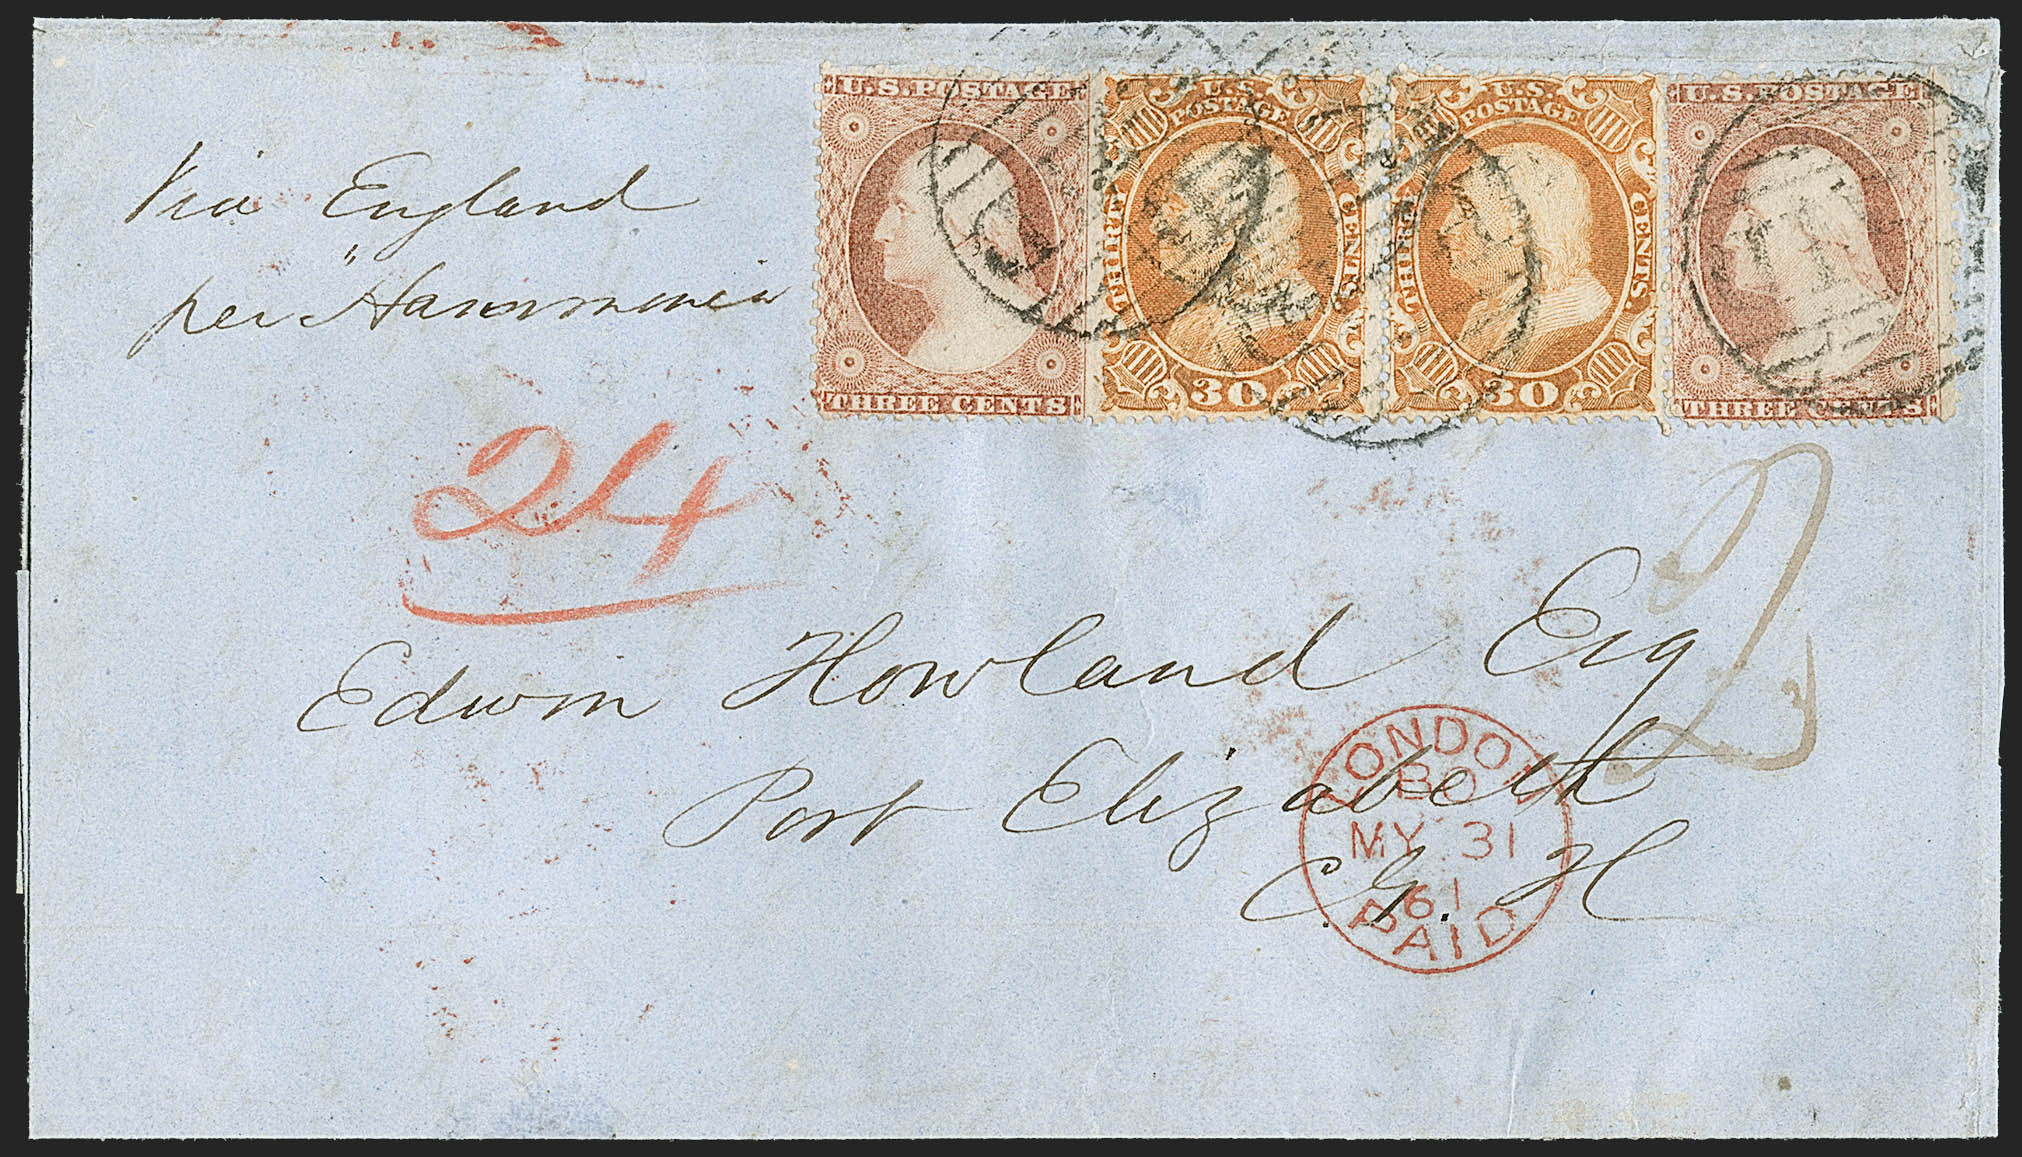 Via England
per "Hammonia
U.S. POSTAGE
THREE CENTS
U.S.
POSTAGE
THIRTY CENTS.
30
U.S.
POSTAGE
THIRTY CENTS.
30
U.S. POSTAGE
THREE CENTS
24
2
Edwin Howland Esq
Port Elizabeth
C. G. H
LONDON
BO
MY 31
61
PAID